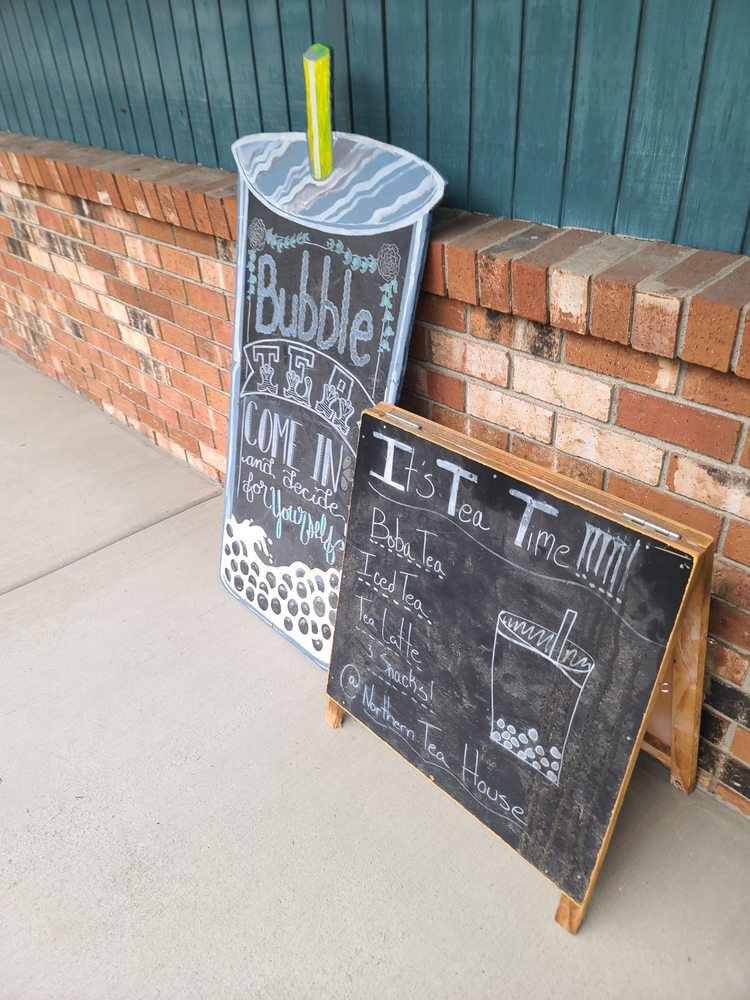 Bubble
TEA
COME IN
and decide
for Yourself
It's Tea Time !!!!!!
Boba Tea
Iced Tea
Tea Latte
& Snacks!
@ Northern Tea House